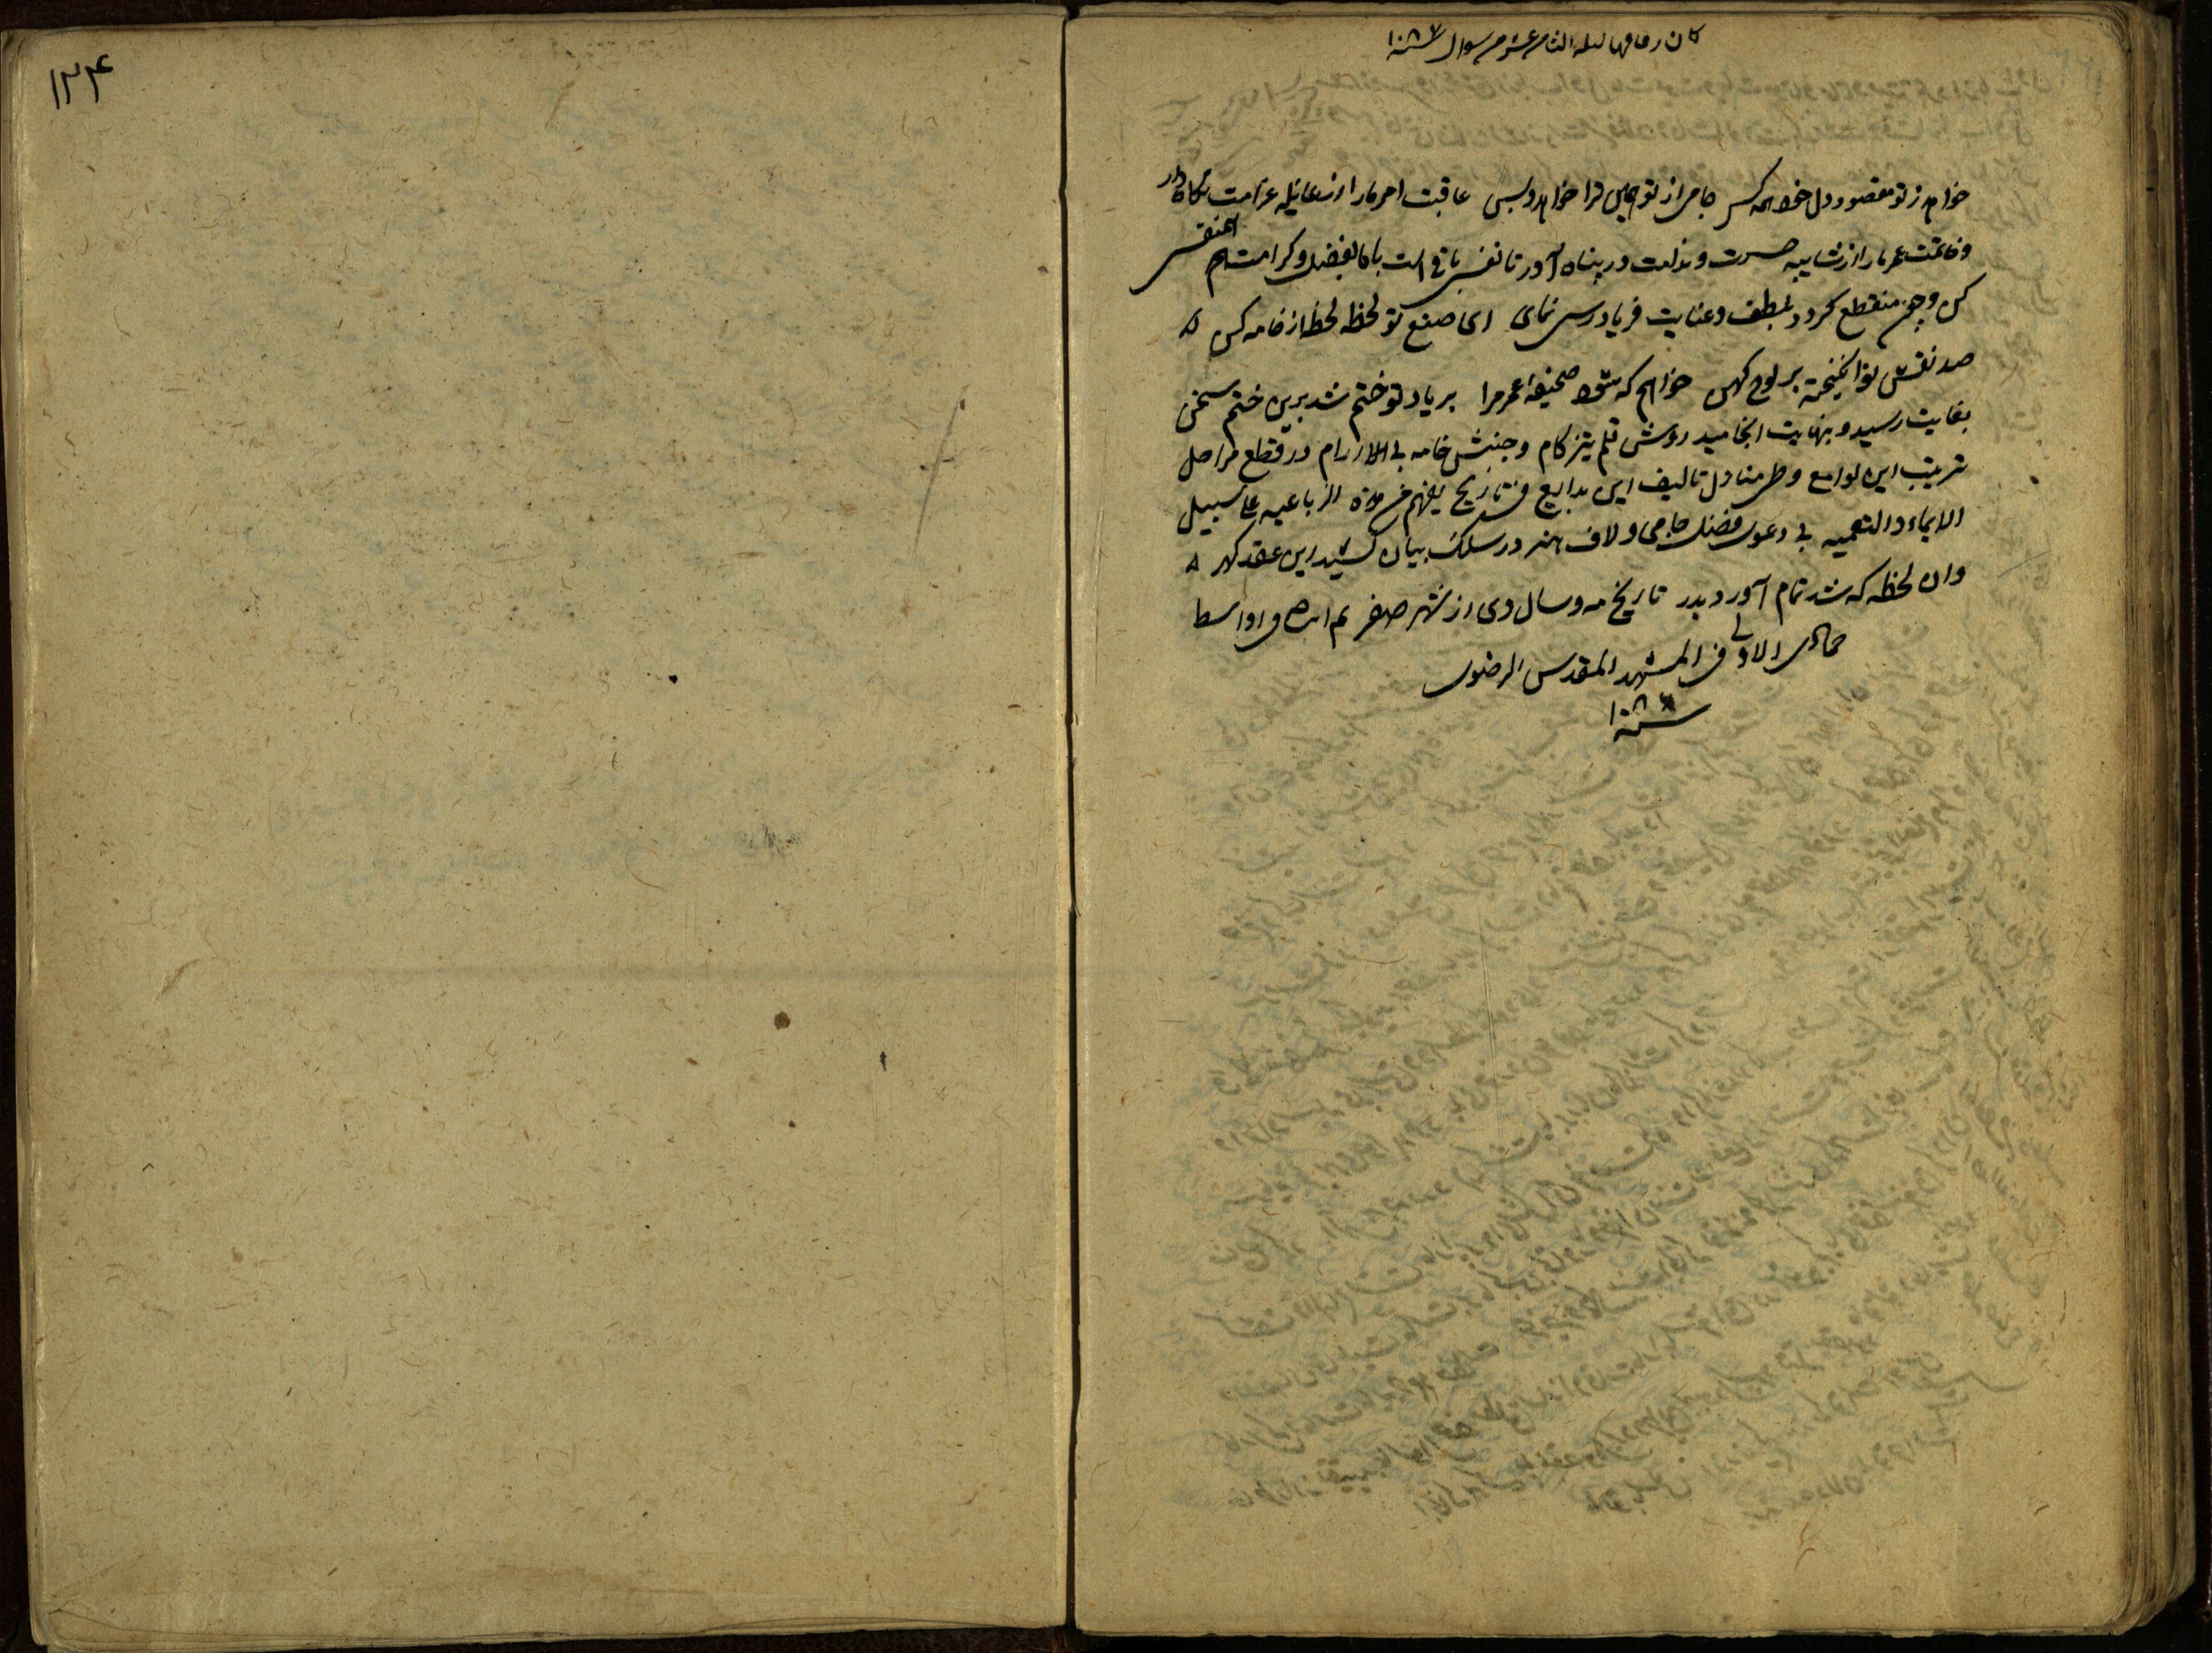 خواهد ز تو مقصود دل خود همه کس جامی از تو همین ترا خواهد و بس عاقبت امر ما را از غایله غرامت نگاه دار
و خاتمت عمر ما را از شایبه حسرت و ندامت در پناه آور تا نفس باقی است با ما بفضل و کرامت هم نفس
کن و چون منقطع گردد بلطف و عنایت فریادرس نمای ای صنع تو لحظه لحظه از خامه کن
صد نقش نو انگیخته بر لوح کهن خواهم که شود صحیفه عمر مرا بر یاد تو ختم شد برین ختم سخن
بغایت رسید و بنهایت انجامید روش قلم تیز کام و جنبش خامه بی آرام در قطع مراحل
ترتیب این لوامع و طی منازل تالیف این بدایع فی تاریخ یفهم من هذه الرباعیه علی سبیل
الایماء و التعمیه بی دعوی فضل جامی و لاف هنر در سلک بیان کشید این عقد گهر
وان لحظه که شد تمام آورد بدر تاریخ مه و سال وی از شهر صفر تم فی اواسط
جمادی الاولی فی المشهد المقدس الرضوی
سنه
۱۲۴